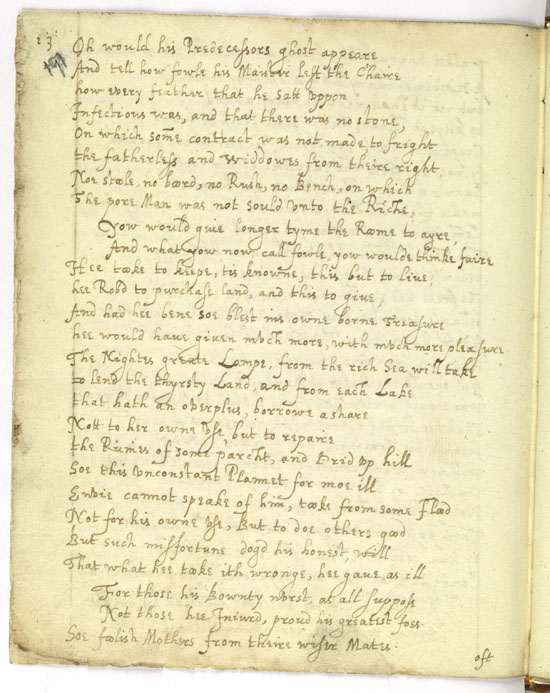 23
197
Oh would his Predecessors ghost appeare
And tell how fowle his Maister left the Chaire
how every feather that he satt vppon
Infectious was, and that there was no stone
On which some contract was not made to fright
the fatherless and widdowes from theire right,
Noe stoole, no boord, no Rush, no Bench, on which
The pore Man was not sould vnto the Riche,
Yow would giue longer tyme the Roome to ayre,
And what yow now call fowle, yow woulde thinke faire
Hee tooke to keepe, tis knowne, this but to liue,
hee Robd to purchase land, and this to giue,
And had hee bene soe blest in's owne borne treasure
hee would have given much more, with much more pleasure
The Nightes greate Lampe, from the rich Sea will take
to lend the thyrsty Land, and from each Lake
that hath an overplus, borrowe a share
Nott to her owne vse, but to repaire
the Ruines of some parcht, and dried vp hill
Soe this vnconstant Plannet for moe ill
Envie cannot speake of him, tooke from some Flood
Not for his owne vse, But to doe others good
But such missfortune dogd his honest will
That what hee tooke ith wronge, hee gaue as ill
For those his Bownty nurst, as all suppose
Not those hee Iniurd, proud his greatest foes.
Soe foolish Mothers from theire wiser Mates.
oft